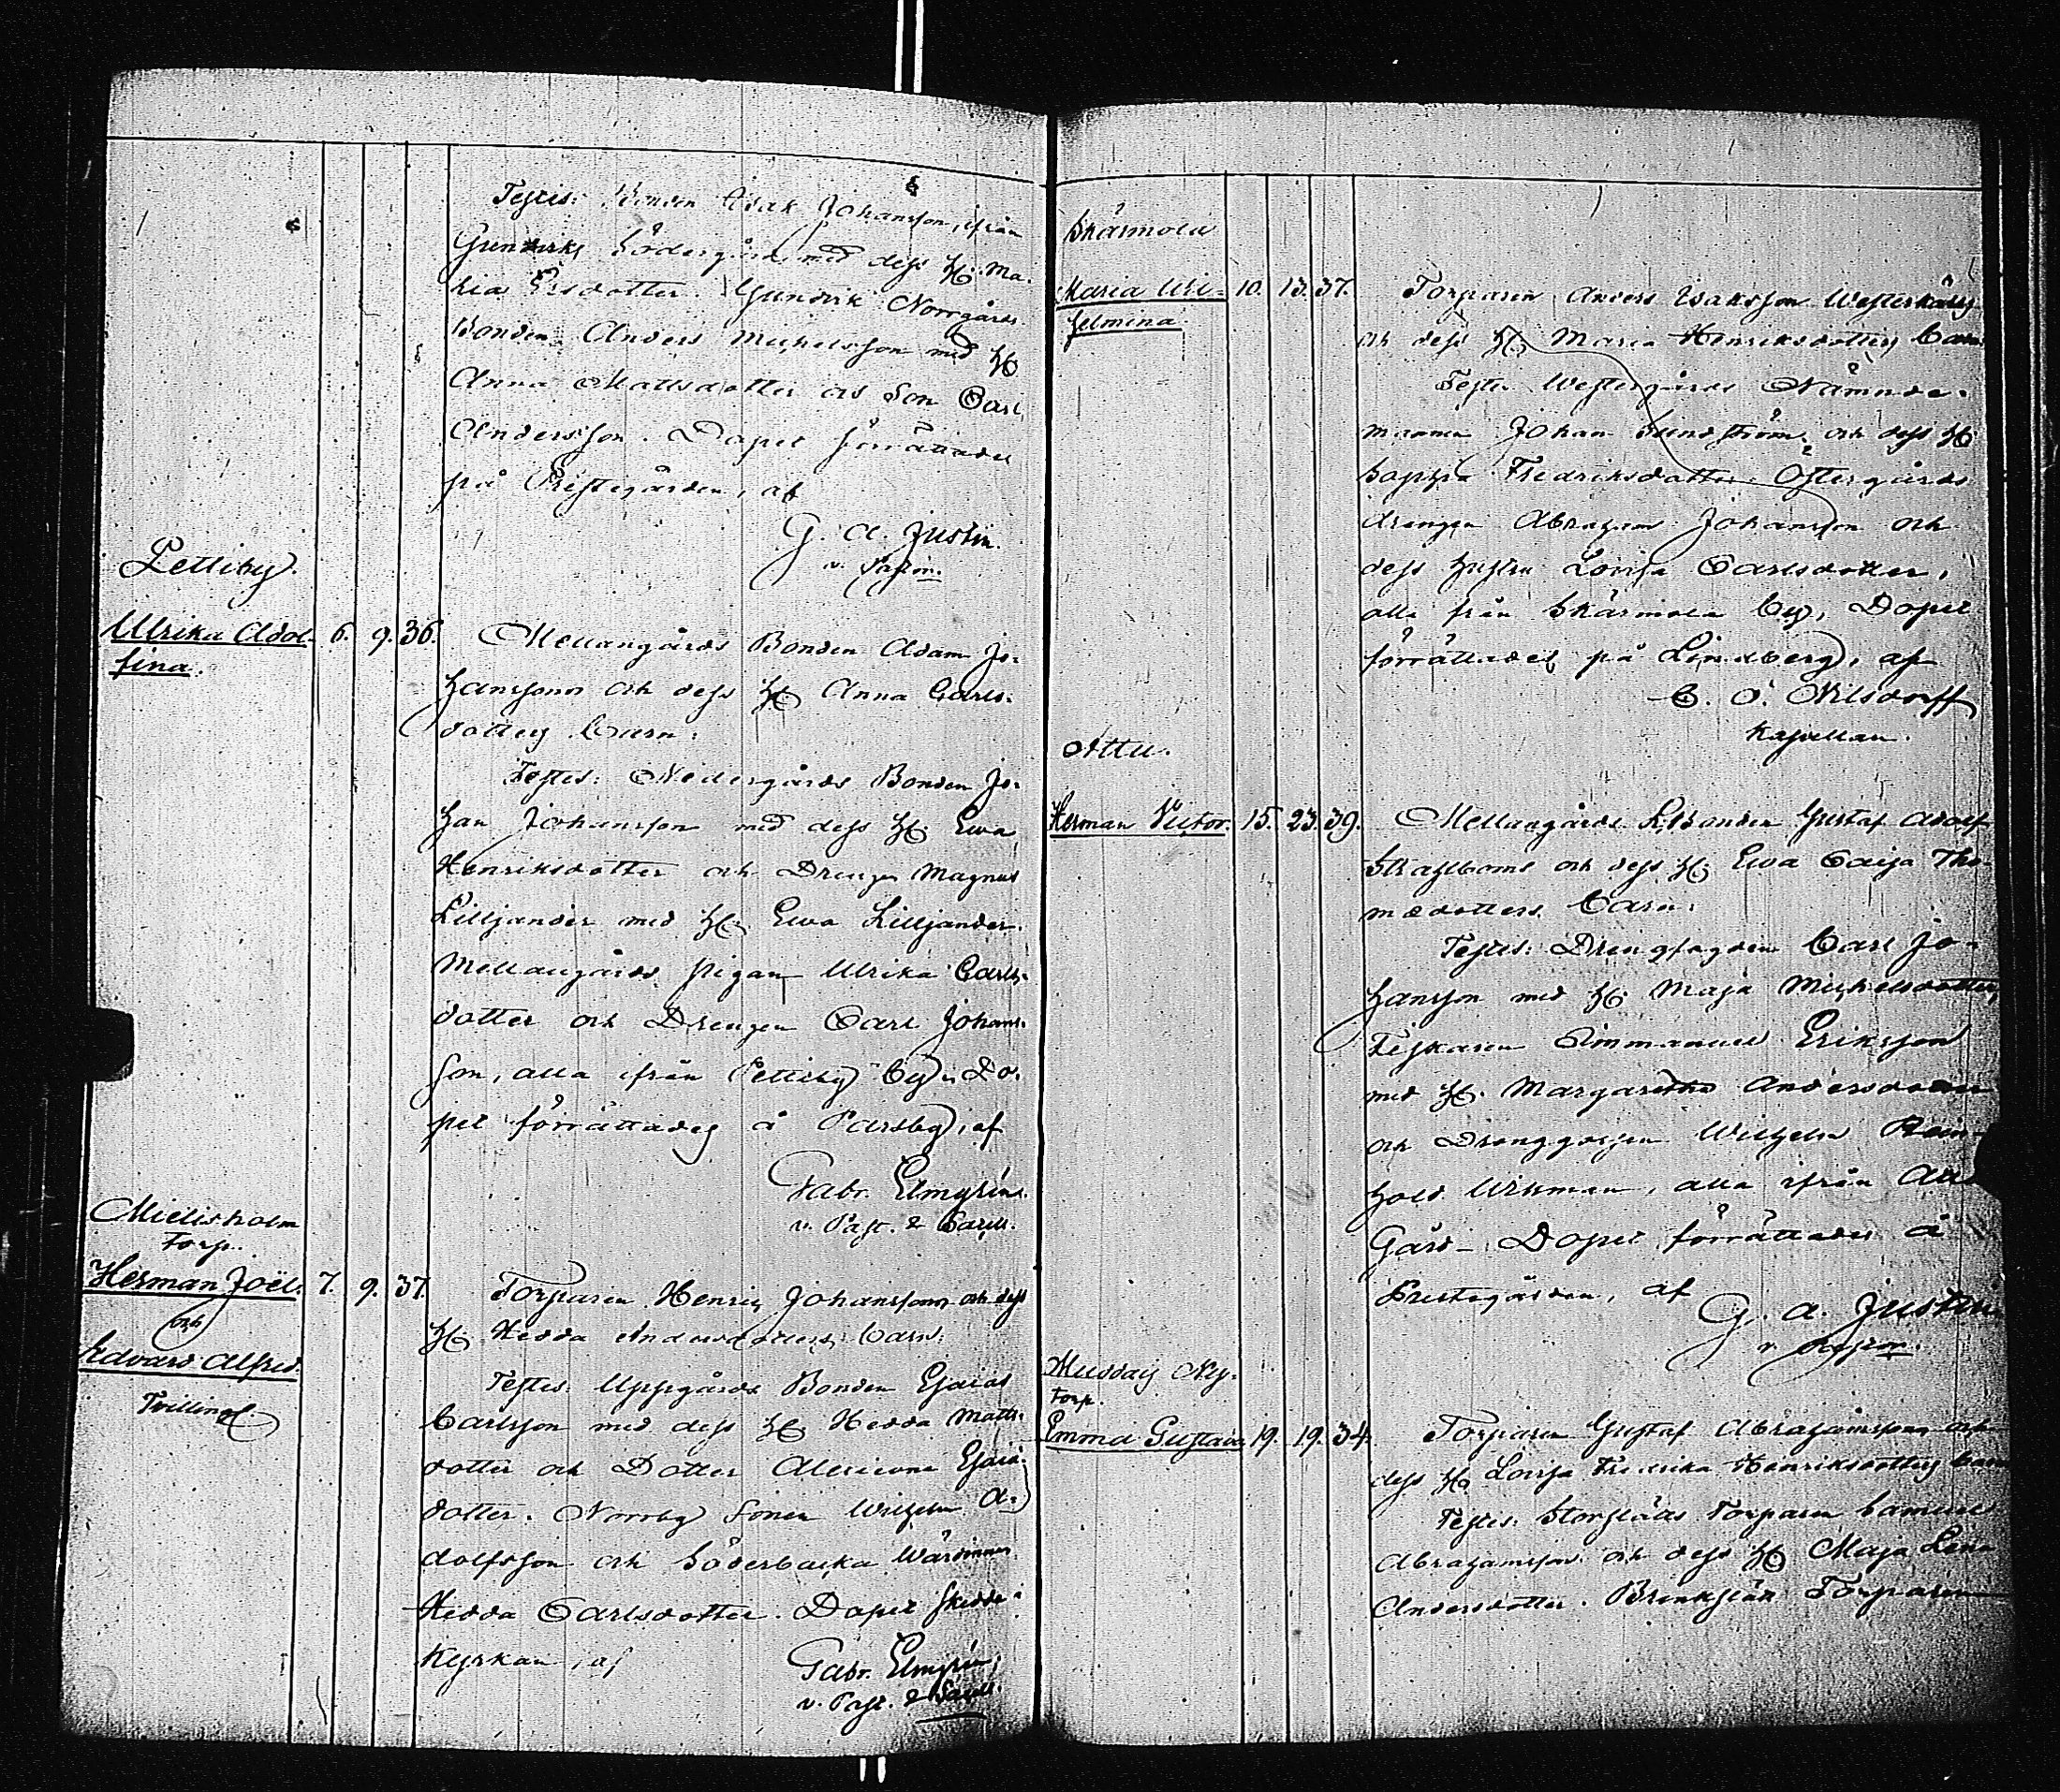 Testes: Bonden Isak Johansson, ifrån
Gunnarks Södergård med dess H. Ma-
ria Ersdotter. Gunvirk Norrgårds
Bonden Anders Michelsson med H
Anna Mattsdotter och Son Carl
Andersson. Dopet förrättades
på Prestegården, af
G. A. Justin.
v. Pastor.
Pettiby.
Ulrika Adol- 6. 9. 36. Mellangårds Bonden Adam Jo-
fina.
hanssons och dess H Anna Carls-
dotters barn.
Testes: Nedergårds Bonden Jo-
han Johansson med dess H. Ewa
Henriksdotter och Drengen Magnus
Lilljander med H. Ewa Lilljander.
Mellangårds pigan Ulrika Carls-
dotter och Drengen Carl Johans-
son, alla ifrån Pettiby by. Do-
pet förrättades å Parsby, af
Gabr. Elmgrén
v. Past. & Capell.
Mielisholm
Torp.
Herman Joël. 7. 9. 37. Torparen Henric Johanssons och dess
och
H. Hedda Andersdotters barn.
Edvard Alfred.
Tvillingr.
Testes: Uppgårds Bonden Esaias
Carlsson med dess H Hedda Matts-
dotter och Dotter Esaias-
dotter. Norrby Sonen Wilhelm A-
dolfsson och Söderbacka Wärdinnan
Hedda Carlsdotter. Dopet skedde i
Kyrkan, af
Gabr. Elmgrén,
v. Past. & Capell.
Skärmola
Maria Wil- 10. 13. 37. Torparen Anders Isaksson Westerkulls
helmina.
och dess H Maria Henriksdotters barn
Testes Westergårds Nämnde-
mannen Johan Sundström och dess H
Sophia Fredriksdotter. Östergårds
drengen Abraham Johansson och
dess hustru Lovisa Carlsdotter,
alla från Skärmola by, Dopet
förrättades på Lindberg, af
C. O. Nilsdorff
Kapellan.
Attu.
Herman Victor. 15. 23. 39. Mellangårds Bonden Gustaf Adolf
och dess H. Ewa Caisa Tho-
mædotters barn.
Testes: Drengfogden Carl Jo-
hansson med H. Maja Michelsdotter,
Fiskaren Immanuel Eriksson
med H. Margaretha Andersdotter
och Drenggossen Wilhelm Rein-
hold Wikman, alla ifrån Attu
Gård. Dopet förrättades å
Prestegården, af
G. A. Justin
v. Pastor.
Ny-
Torp.
Emma Gustava 19. 19. 34. Torparen Gustaf Abrahamssons och
dess H Lovisa Fredrika Henriksdotters barn
Testes: Torparen Samuel
Abrahamsson och dess H Maja Lena
Andersdotter. Torparen